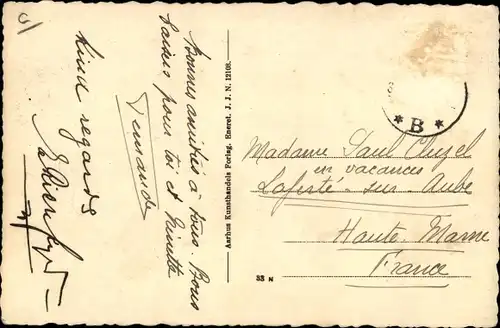 Bonnes amitiés à tous. Bons
baisers pour toi et Ninette
Fernande
Kind regards
Aarhus Kunsthandels Forlag. Eneret. J. J. N. 12108.
33 N
* B *
Madame Paul Cluzel
en vacances
Laferté-sur-Aube
Haute-Marne
France